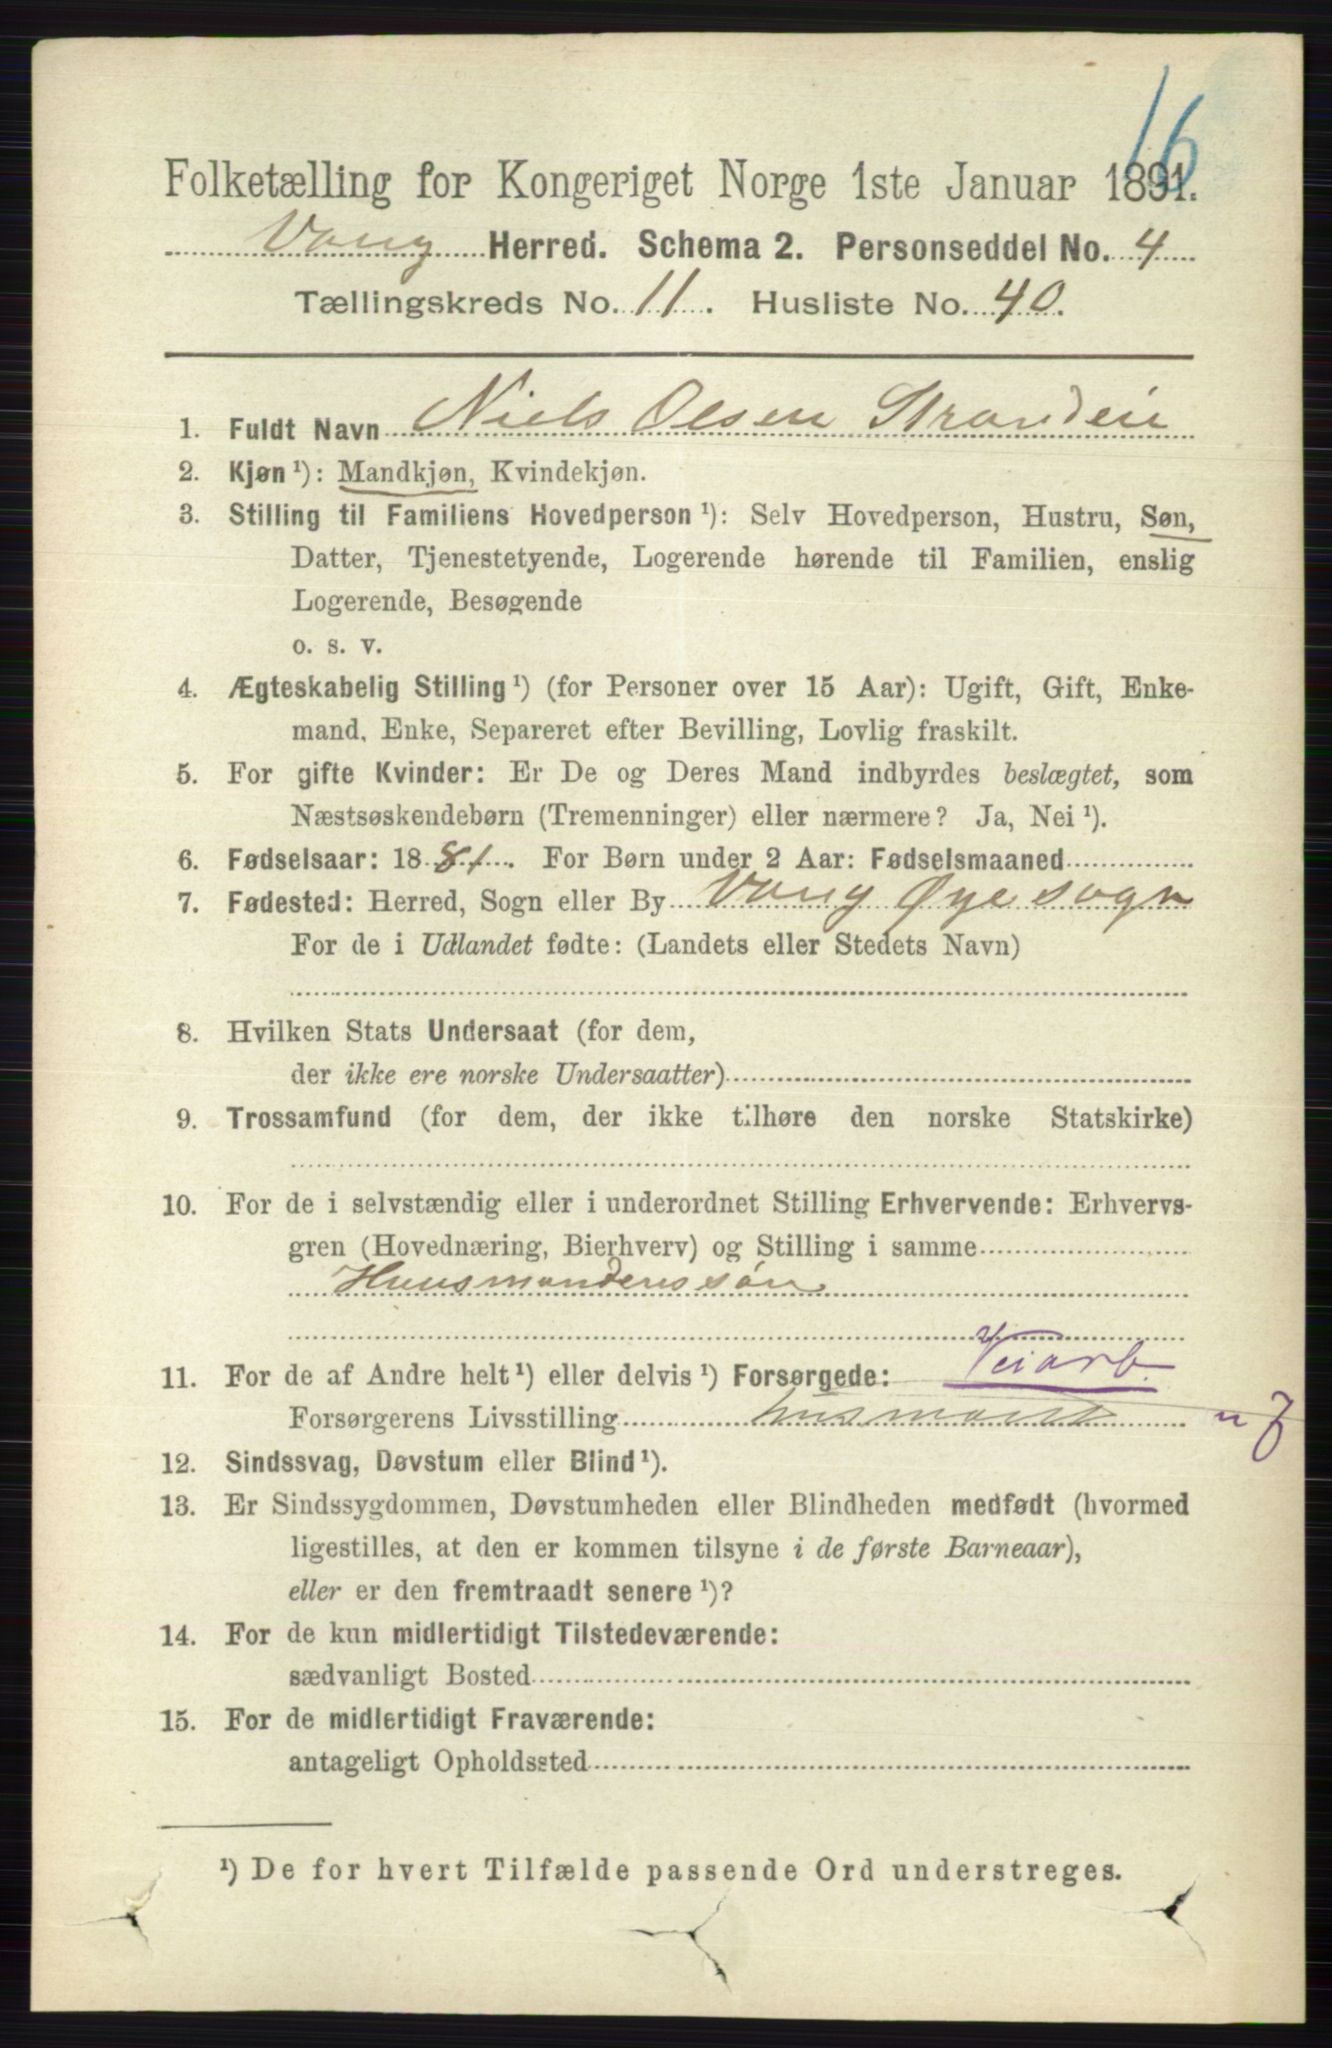 16
Folketælling for Kongeriget Norge 1ste Januar 1891.
Vang Herred. Schema 2. Personseddel No. 4
Tællingskreds No. 11. Husliste No. 40.
1. Fuldt Navn Niels Olsen Strandein
2. Kjøn ¹): Mandkjøn, Kvindekjøn.
3. Stilling til Familiens Hovedperson ¹): Selv Hovedperson, Hustru, Søn,
Datter, Tjenestetyende, Logerende hørende til Familien, enslig
Logerende, Besøgende
o. s. v.
4. Ægteskabelig Stilling ¹) (for Personer over 15 Aar): Ugift, Gift, Enke-
mand, Enke, Separeret efter Bevilling, Lovlig fraskilt.
5. For gifte Kvinder: Er De og Deres Mand indbyrdes beslægtet, som
Næstsøskendebørn (Tremenninger) eller nærmere? Ja, Nei ¹).
6. Fødselsaar: 1881. For Børn under 2 Aar: Fødselsmaaned
7. Fødested: Herred, Sogn eller By Vang Øye sogn
For de i Udlandet fødte: (Landets eller Stedets Navn)
8. Hvilken Stats Undersaat (for dem,
der ikke ere norske Undersaatter)
9. Trossamfund (for dem, der ikke tilhøre den norske Statskirke)
10. For de i selvstændig eller i underordnet Stilling Erhvervende: Erhvervs-
gren (Hovednæring, Bierhverv) og Stilling i samme
Huusmandenssøn
Veiarb.
11. For de af Andre helt ¹) eller delvis ¹) Forsørgede:
Forsørgerens Livsstilling husmand
12. Sindssvag, Døvstum eller Blind ¹).
13. Er Sindssygdommen, Døvstumheden eller Blindheden medfødt (hvormed
ligestilles, at den er kommen tilsyne i de første Barneaar),
eller er den fremtraadt senere ¹)?
14. For de kun midlertidigt Tilstedeværende:
sædvanligt Bosted
15. For de midlertidigt Fraværende:
antageligt Opholdssted
¹) De for hvert Tilfælde passende Ord understreges.